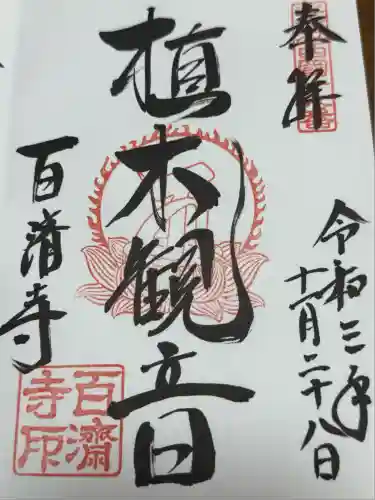 奉拝
令和三年
十一月二十八日
植木観音
百済寺
百濟
寺印